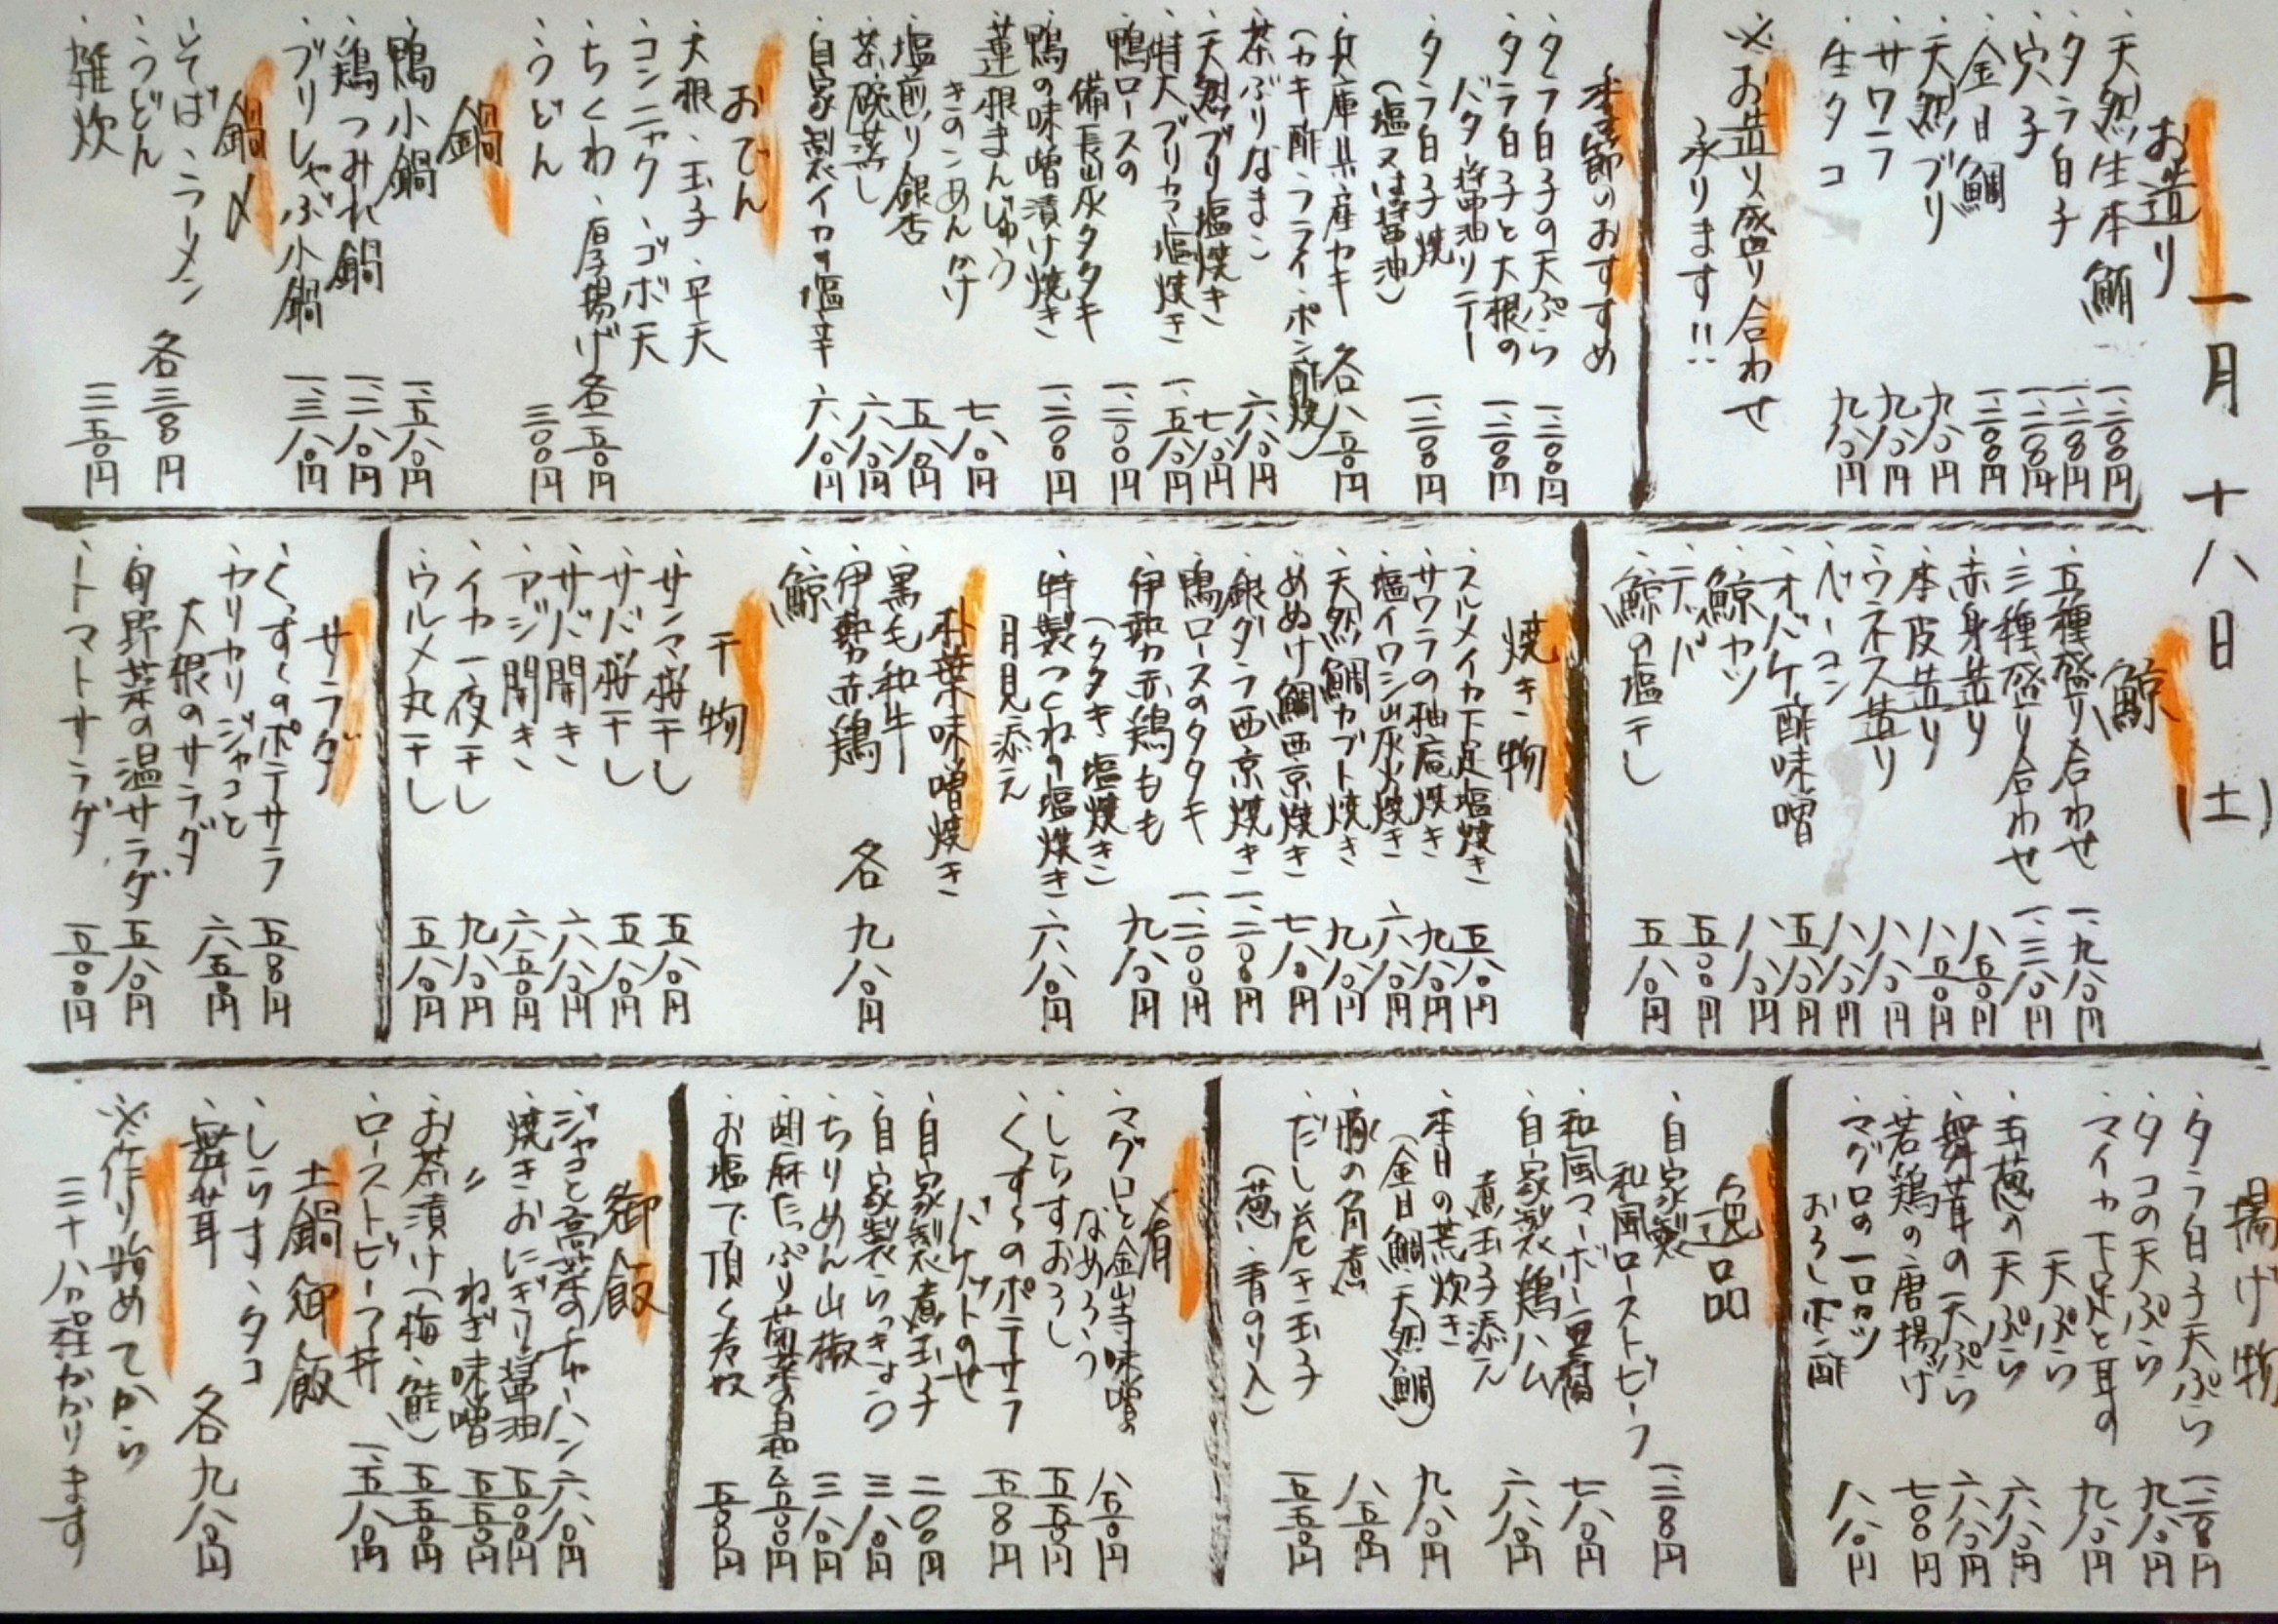 一月十八日(土)
お造り
・天然生本鮪 一、二〇〇円
・タラ白子 一、二〇〇円
・穴子 一、二〇〇円
・金目鯛 一、二〇〇円
・天然ブリ 九八〇円
・サワラ 九八〇円
・生タコ 九八〇円
※お造り盛り合わせ
承ります!!
季節のおすすめ
・タラ白子の天ぷら 一、二〇〇円
・タラ白子と大根の
バター醤油ソテー 一、二〇〇円
・タラ白子焼
(塩又は醤油) 一、二〇〇円
・兵庫県産カキ 各八五〇円
(カキ酢・フライ・ポン酢焼)
・茶ぶりなまこ 六八〇円
・天然ブリ塩焼き 七八〇円
・特大ブリカマ塩焼き 一、五八〇円
・鴨ロースの
備長炭灰タタキ 一、二〇〇円
・鴨の味噌漬け焼き 一、二〇〇円
・蓮根まんじゅう
きのこあんかけ 七八〇円
・塩煎り銀杏 五八〇円
・茶碗蒸し 六八〇円
・自家製イカの塩辛 六八〇円
おでん
・大根・玉子・平天
・コンニャク・ゴボ天
・ちくわ・厚揚げ 各二五〇円
・うどん 三〇〇円
鍋
・鴨小鍋 一、五八〇円
・鶏つみれ鍋 一、二八〇円
・ブリしゃぶ小鍋 一、三八〇円
鍋〆
・そば・ラーメン
・うどん 各三〇〇円
・雑炊 三五〇円
鯨
・五種盛り合わせ 一、九八〇円
・三種盛り合わせ 一、三八〇円
・赤身造り 八五〇円
・本皮造り 八五〇円
・ウネス造り 八八〇円
・ベーコン 八八〇円
・オバケ酢味噌 五八〇円
・鯨カツ 八八〇円
・テッパ 五〇〇円
・鯨の塩干し 五八〇円
焼き物
・スルメイカ下足塩焼き 五八〇円
・サワラの柚庵焼き 九八〇円
・塩イワシ炭火焼き 六八〇円
・天然鯛カブト焼き 九八〇円
・めぬけ鯛西京焼き 七八〇円
・銀ダラ西京焼き 一、二〇〇円
・鴨ロースのタタキ 一、二〇〇円
・伊勢赤鶏もも
(タタキ・塩焼き) 九八〇円
・特製つくねの塩焼き 六八〇円
月見添え
朴葉味噌焼き
・黒毛和牛
・伊勢赤鶏 各九八〇円
・鯨
干物
・サンマ桜干し 五八〇円
・サバ桜干し 五八〇円
・サバ開き 六八〇円
・アジ開き 六五〇円
・イカ一夜干し 九八〇円
・ウルメ丸干し 五八〇円
サラダ
・くすくのポテサラ 五〇〇円
・カリカリジャコと
大根のサラダ 六五〇円
・旬野菜の温サラダ 五八〇円
・トマトサラダ 五〇〇円
揚げ物
・タラ白子天ぷら 一、二〇〇円
・タコの天ぷら 九八〇円
・マイカ下足と耳の
天ぷら 九八〇円
・玉葱の天ぷら 六八〇円
・舞茸の天ぷら 六八〇円
・若鶏の唐揚げ 七〇〇円
・マグロの一口カツ
おろしポン酢 八八〇円
逸品
・自家製
和風ローストビーフ 一、二〇〇円
・和風マーボー豆腐 七八〇円
・自家製鶏ハム
煮玉子添え 六八〇円
・本日の荒炊き
(金目鯛・天然鯛) 九八〇円
・豚の角煮 八五〇円
・だし巻き玉子
(葱・青のり入) 五五〇円
〆肴
・マグロと金山寺味噌の
なめろう 八五〇円
・しらすおろし 五五〇円
・くすくのポテサラ
バゲットのせ 五〇〇円
・自家製煮玉子 二〇〇円
・自家製らっきょう 三八〇円
・ちりめん山椒 三八〇円
・胡麻たっぷり菊菜の白和え 五〇〇円
・お塩で頂く冷奴 五〇〇円
御飯
・ジャコと高菜のチャーハン 六八〇円
・焼きおにぎり醤油 五〇〇円
〃 ねぎ味噌 五五〇円
・お茶漬け(梅・鮭) 五五〇円
・ローストビーフ丼 一、五八〇円
土鍋御飯
・しらす・タコ
・舞茸 各九八〇円
※作り始めてから
三十八分程かかります